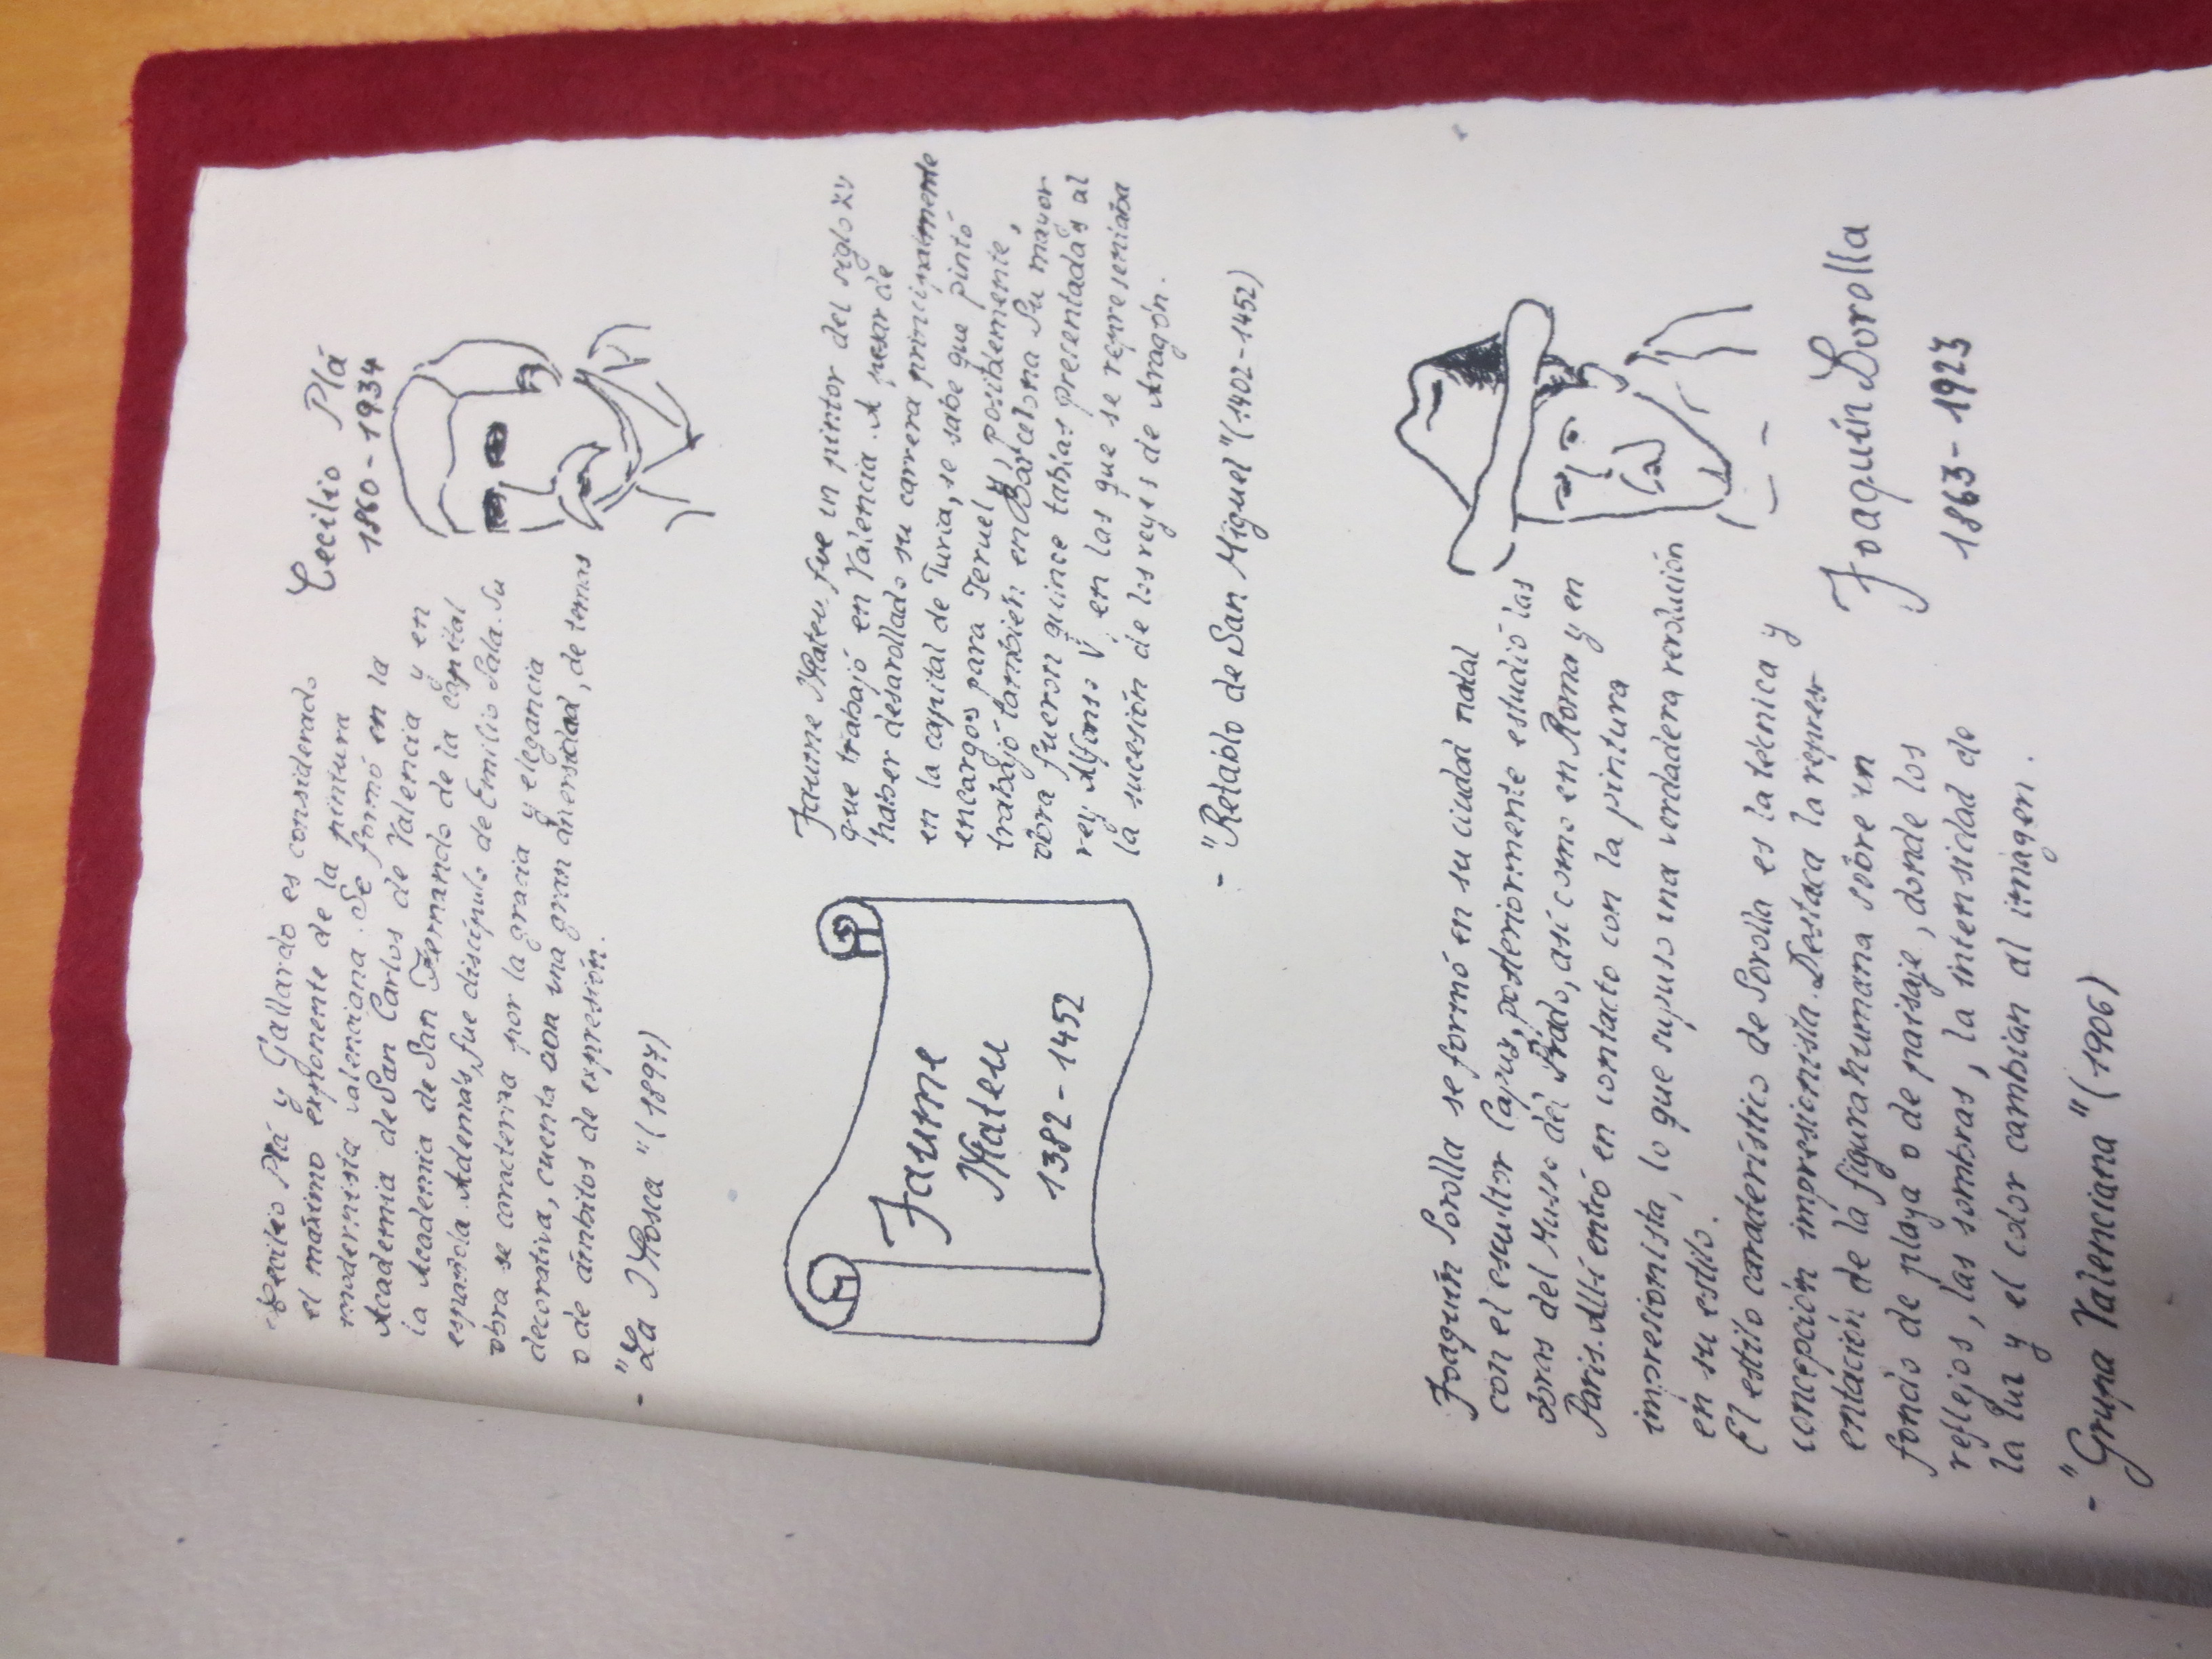 Cecilio Plá y Gallardo es considerado
el máximo exponente de la pintura
modernista valenciana. Se formó en la
Academia de San Carlos de Valencia y en
la Academia de San Fernando de la capital
española. Además, fue discípulo de Emilio Sala. Su
obra se caracteriza por la gracia y elegancia
decorativa, cuenta con una gran diversidad, de temas
o de ámbitos de expresión.
- "La Mosca" (1897)
Cecilio Plá
1860-1934
Jaume
Mateu
1382-1452
Jaume Mateu fue un pintor del siglo XV
que trabajó en Valencia. A pesar de
haber desarollado su carrera principalmente
en la capital de Turia, se sabe que pintó
encargos para Teruel y, positlemente,
trabajó también en Barcelona Su mayor
obra fueron quince tablas precentadas al
rey Alfonso V en las que se representaba
la sucesión de los reyes de Aragón.
- "Retablo de San Miguel" (1402-1452)
Joaquín Sorolla se formó en su ciudad natal
con el escultor Capuz, posteriormente estudió las
obras del Museo del Prado, así como en Roma y en
Paris. Allí entró en contacto con la pintura
impresionista, lo que supuso una verdadera revolución
en su estilo.
El estilo caraderístico de Sorolla es la técnica y
concepción impresionista. Destaca la repres
entación de la figura humana sobre un
fondo de playa o de paisaje, donde los
reflejos, las sombras, la intensidad de
la luz y el color cambian al imágen.
- "Grupa Valenciana" (1906)
Joaquín Sorolla
1863-1923